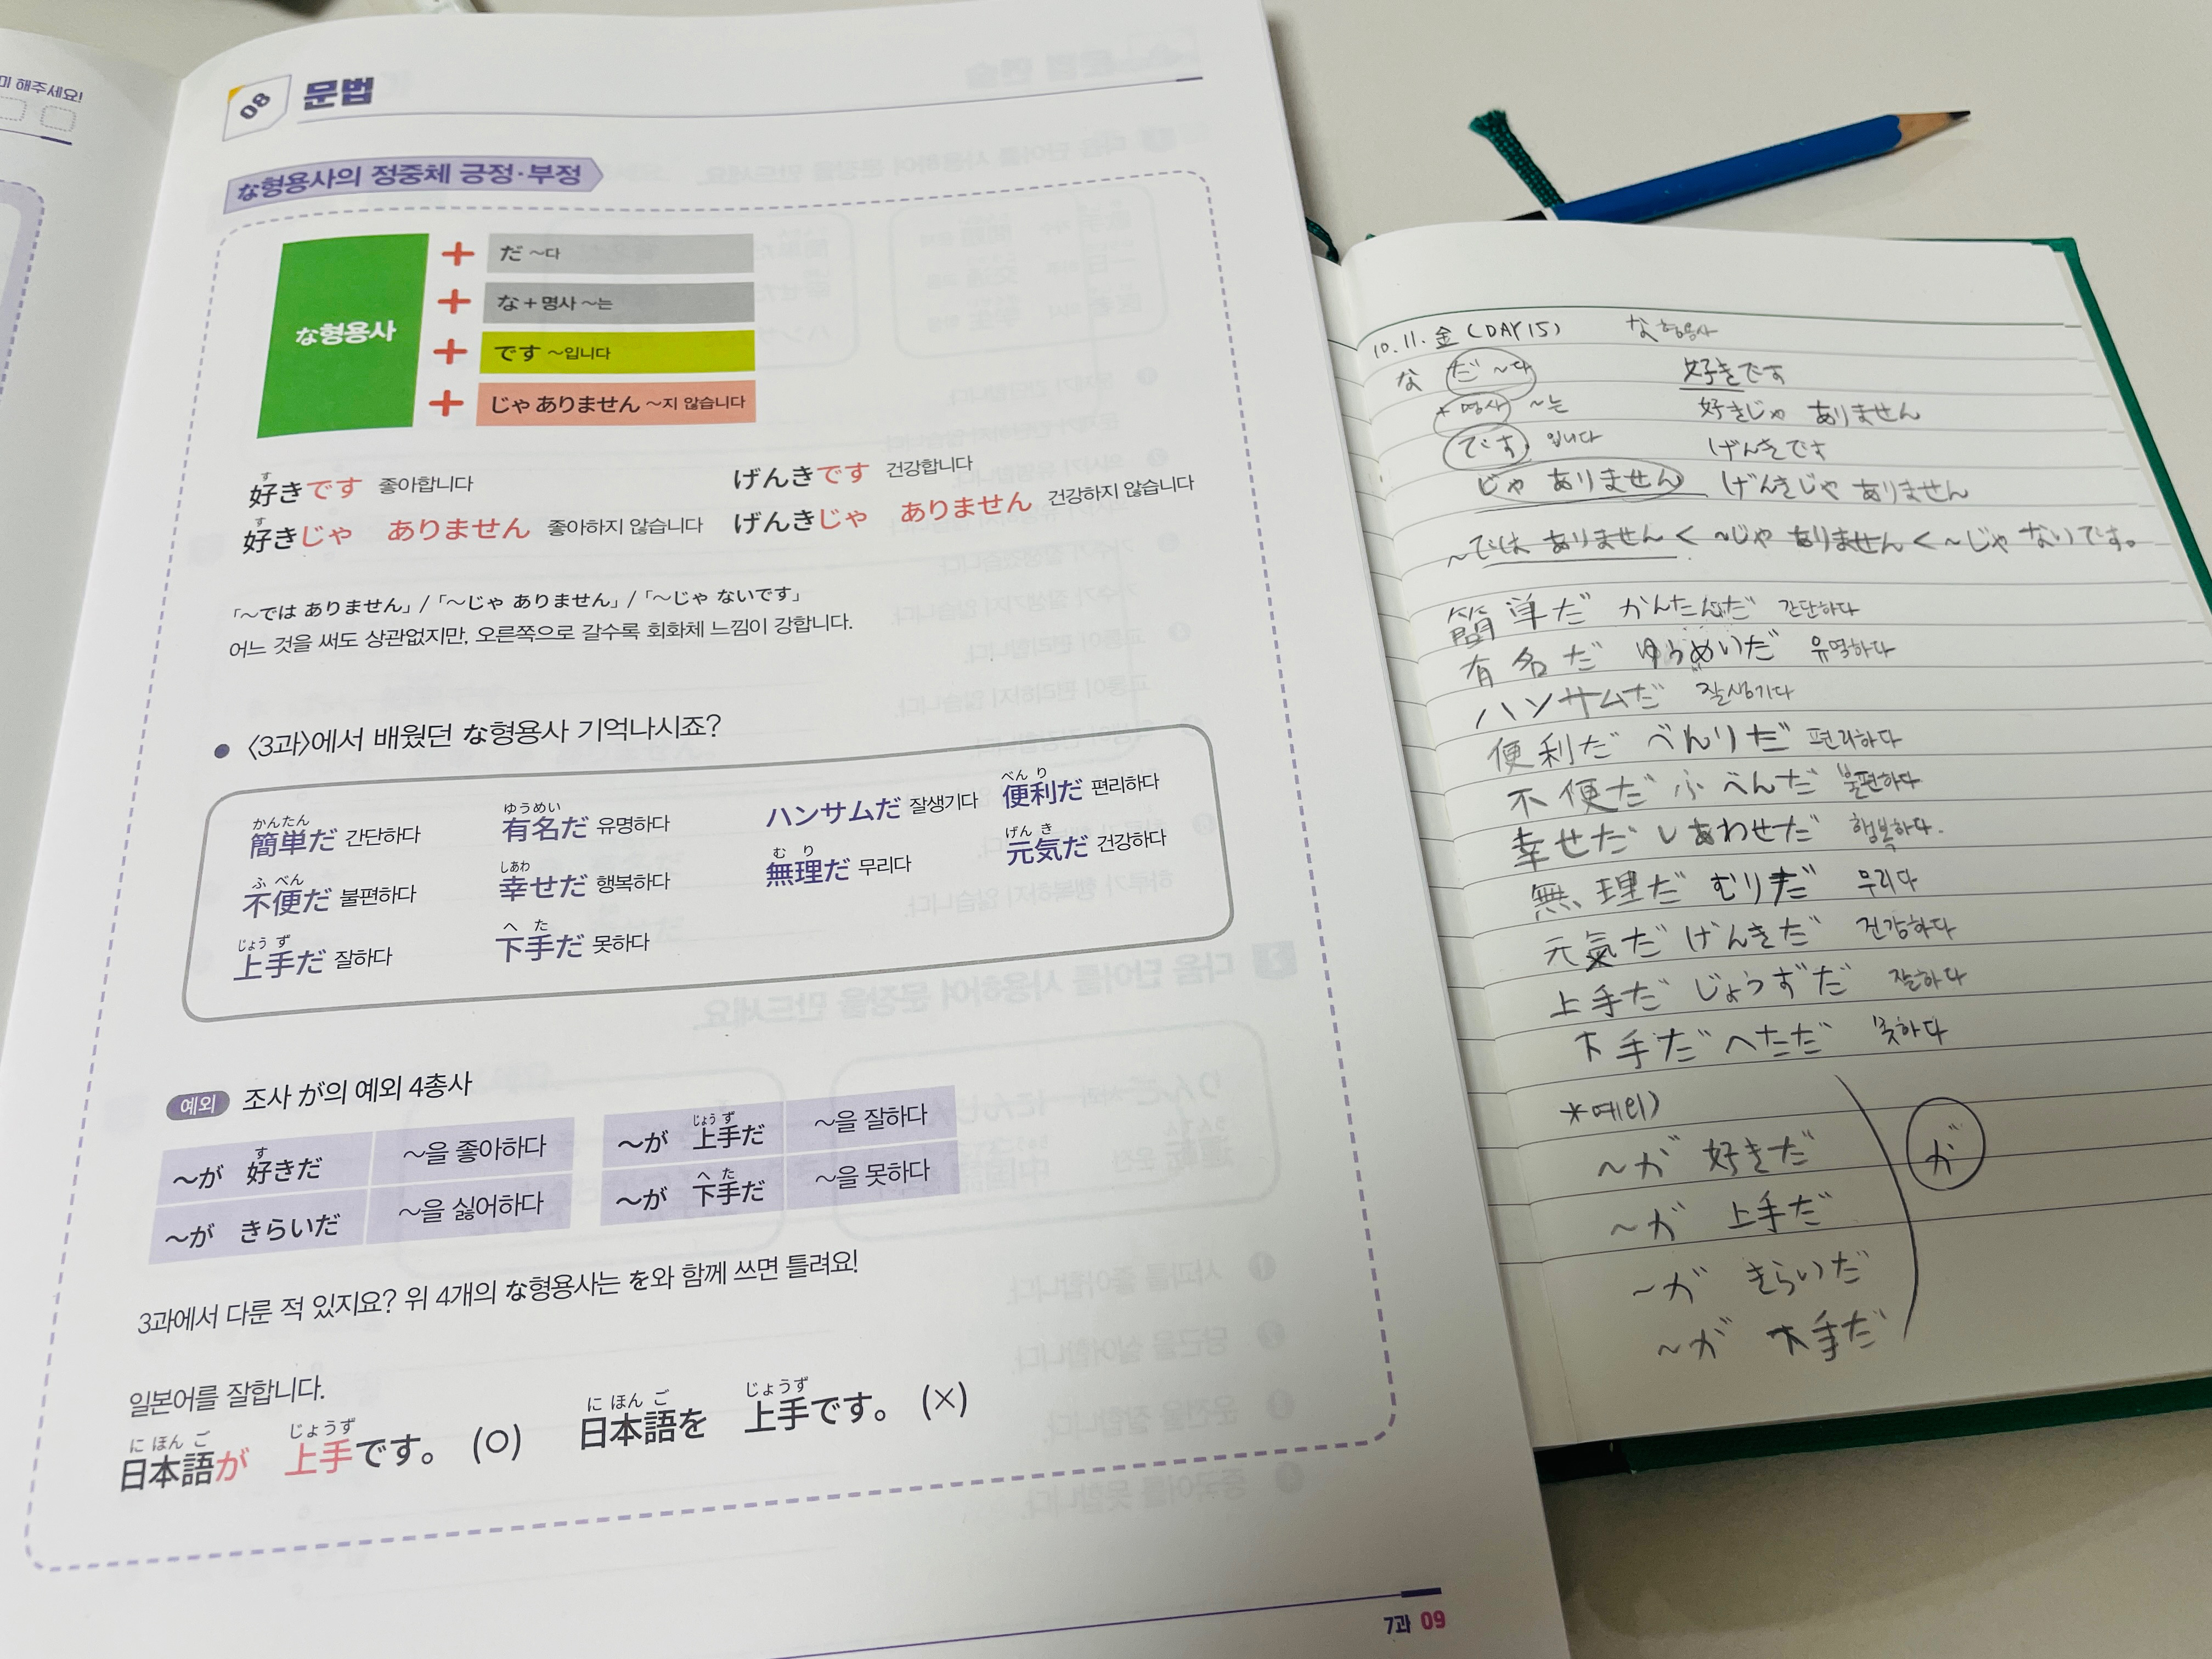 미 해주세요!
08 문법
な형용사의 정중체 긍정·부정
な형용사
+ だ ~다
+ な+명사 ~는
+ です ~입니다
+ じゃ ありません ~지 않습니다
す
好きです 좋아합니다
げんきです 건강합니다
す
好きじゃ ありません 좋아하지 않습니다
げんきじゃ ありません 건강하지 않습니다
「~では ありません」/「~じゃ ありません」/「~じゃ ないです」
어느 것을 써도 상관없지만, 오른쪽으로 갈수록 회화체 느낌이 강합니다.
● 〈3과〉에서 배웠던 な형용사 기억나시죠?
かんたん ゆうめい べん り
簡単だ 간단하다 有名だ 유명하다 ハンサムだ 잘생기다 便利だ 편리하다
ふ べん しあわ む り げん き
不便だ 불편하다 幸せだ 행복하다 無理だ 무리다 元気だ 건강하다
じょう ず へ た
上手だ 잘하다 下手だ 못하다
예외 조사 が의 예외 4총사
す じょう ず
~が 好きだ ~을 좋아하다 ~が 上手だ ~을 잘하다
へ た
~が きらいだ ~을 싫어하다 ~が 下手だ ~을 못하다
3과에서 다룬 적 있지요? 위 4개의 な형용사는 を와 함께 쓰면 틀려요!
일본어를 잘합니다.
に ほん ご じょうず
日本語が 上手です。 (○)
に ほん ご じょうず
日本語を 上手です。 (×)
7과 09
10.11.金 (DAY15) な형용사
な だ ~다 好きです
+명사 ~는 好きじゃ ありません
です 입니다 げんきです
じゃ ありません げんきじゃ ありません
~では ありません < ~じゃ ありません < ~じゃ ないです。
簡単だ かんたんだ 간단하다
有名だ ゆうめいだ 유명하다
ハンサムだ 잘생기다
便利だ べんりだ 편리하다
不便だ ふべんだ 불편하다
幸せだ しあわせだ 행복하다.
無理だ むりだ 무리다
元気だ げんきだ 건강하다
上手だ じょうずだ 잘하다
下手だ へただ 못하다
*예외)
~が 好きだ
~が 上手だ
~が きらいだ
~が 下手だ
が